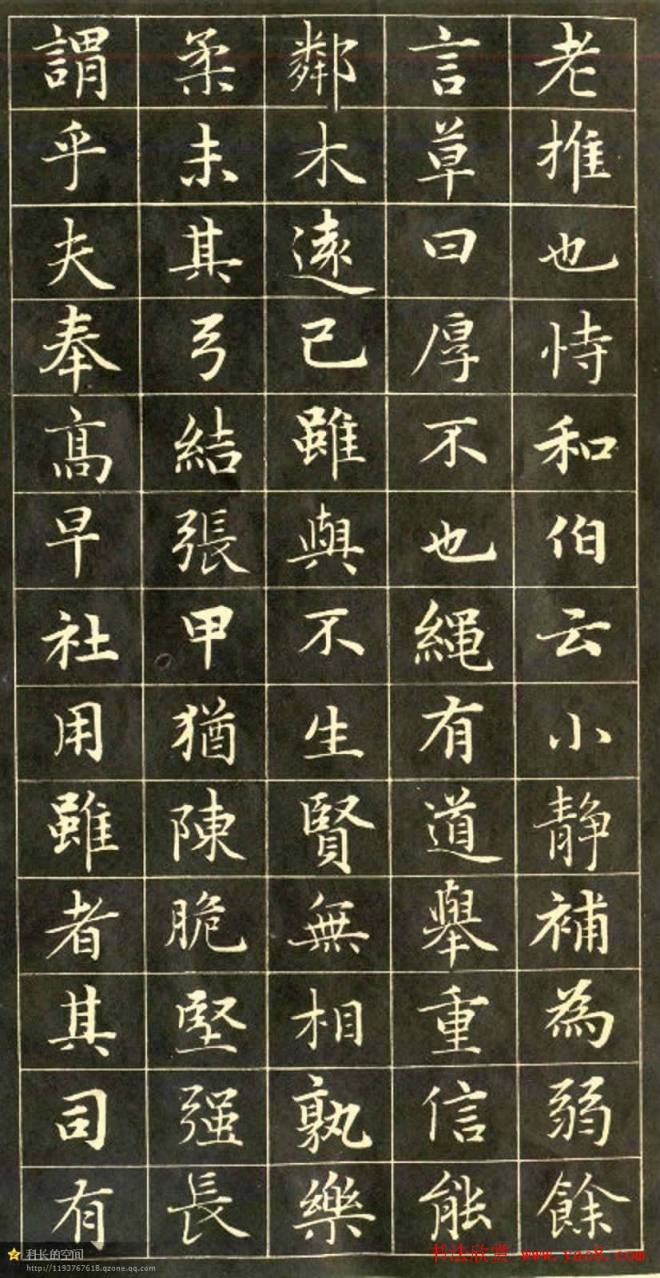 老推也恃和伯云小静補為弱餘
言草曰厚不也繩有道舉重信能
鄰木遠己雖與不生賢無相孰樂
柔未其弓結張甲猶陳脆堅强長
謂乎夫奉高早社用雖者其司有
科长的空间
http://1193767618.qzone.qq.com
书法欣赏 www.yac8.com